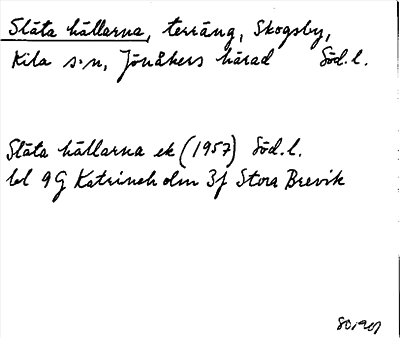 Släta hällarna, terräng, Skogsby,
Kila s:n, Jönåkers härad Söd.l.
Släta hällarna ek (1957) Söd.l.
bl 9G Katrineholm 3f Stora Brevik